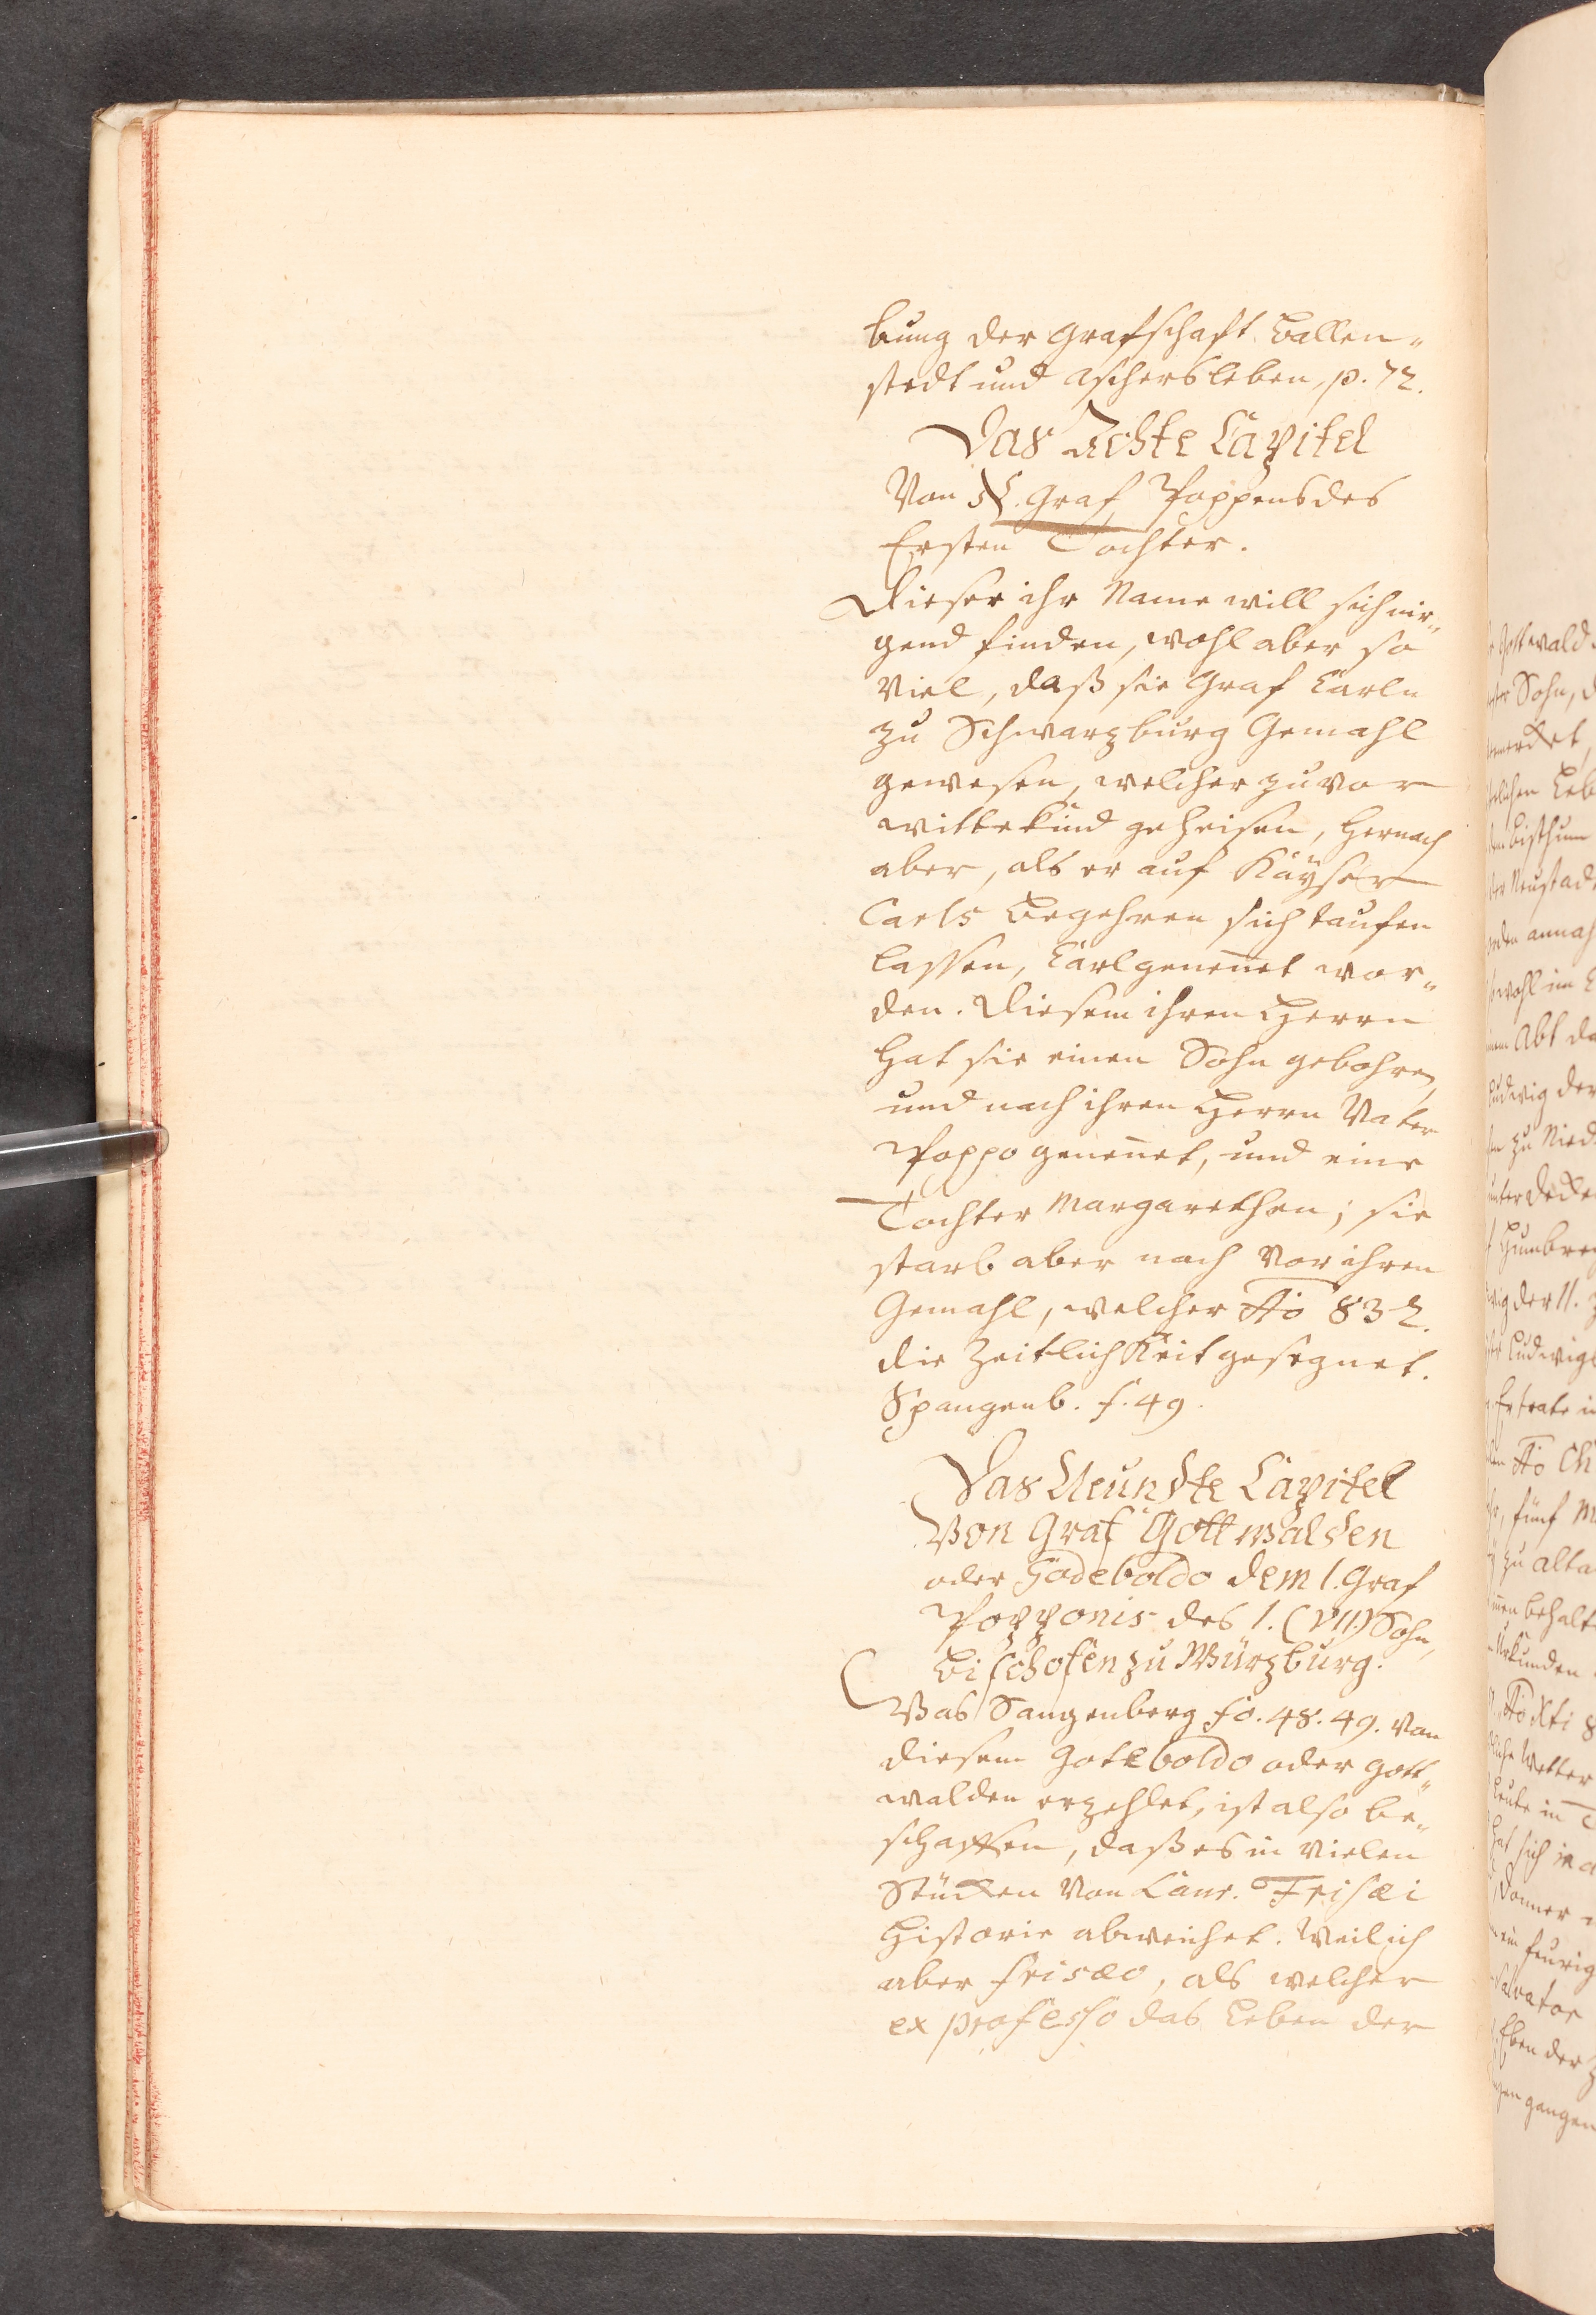 bung der Grafschaft Ballen„
stedt und Aschersleben, p. 72.
Das Achte Capitel
Von Graf Poppens des
Ersten Tochter.
Dieser ihr Name will sich nir„
gend finden, wohl aber so
viel, daß sie Graf Carln
zu Schwarzburg Gemahl
gewesen, welcher zuvor
wittekind geheisen, hernach
aber, als er auf Käyser
Carls Begehren sich taufen
lassen, Carl genennet wor„
den. Diesem ihren Herrn
hat sie einen Sohn gebohren,
und nach ihren Herrn Vater
Poppo genennet, und eine
Tochter Margarethen; sie
starb aber noch vor ihren
Gemahl, welcher Ao 832.
die Zeitlichkeit gesegnet.
Spangenb. f. 49.
Das Neundte Capitel
Von Graf Gottwalden
oder Godeboldo dem 1. Graf
Popponis des 1. (VII.) Sohn,
Bischofen zu Würzburg.
Was Sangenberg fo. 48. 49. von
diesem Goteboldo oder Gott„
walden erzehlet, ist also be„
schaffen, daß es in vielen
Stücken von Laur. Frisæi
Historie abweichet. Weil ich
aber Frisæo, als welcher
ex professo das Leben der